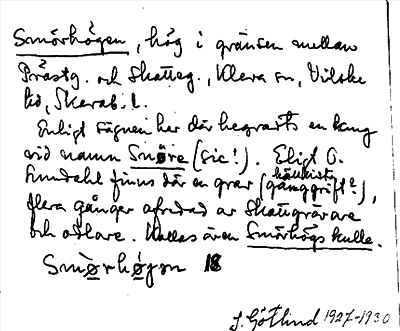 Smörhögen, hög i gränsen mellan
Prästg. och Skatteg., Kleva sn, Vilske
hd, Skarab. l.
Enligt sägnen har där begravts en kung
vid namn Smøre (sic!). Enligt O.
Sundahl finns där en grav (gånggrift?),
hällkista
flera gånger afredad av Skattgrävare
och odlare. Kallas även Smörhögs kulle.
Smørhögen 18
J. Götlind 1927-1930